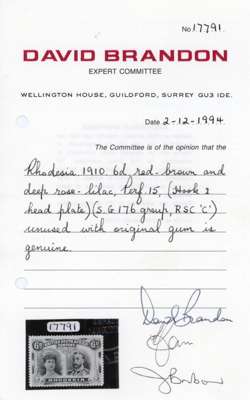 No 17791.
DAVID BRANDON
EXPERT COMMITTEE
WELLINGTON HOUSE, GUILDFORD, SURREY GU3 IDE.
Date 2-12-1994.
The Committee is of the opinion that the
Rhodesia 1910. 6d, red-brown and
deep rose-lilac, Perf. 15, (Hook &
head plate) (S.G 176 group, RSC 'C')
unused with original gum is
genuine.
17791
RHODESIA
David Brandon